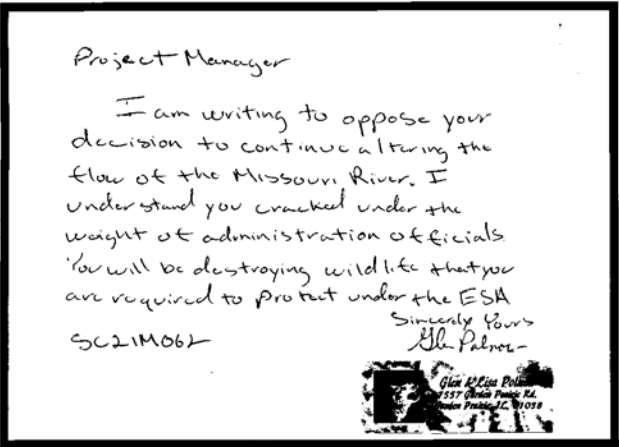 Project Manager
I am writing to oppose your
decision to continue altering the
flow of the Missouri River. I
understand you cracked under the
weight of administration officials.
You will be destroying wildlife that you
are required to protect under the ESA
Sincerely Yours
SC21M062
Glen & Lisa
Garden Prairie Rd.
Prairie, IL